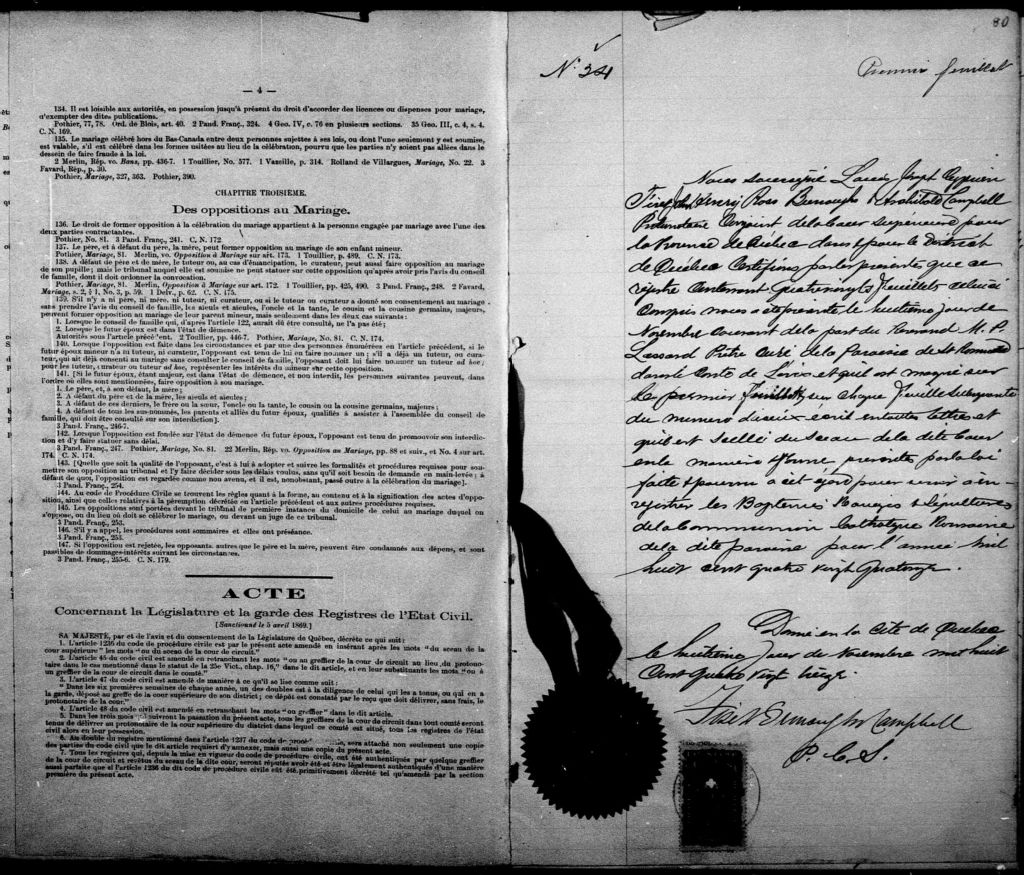 — 4 —
134. Il est loisible aux autorités, en possession jusqu'à présent du droit d'accorder des licences ou dispenses pour mariage,
d'exempter des dites publications.
Pothier, 77, 78. Ord. de Blois, art. 40. 2 Pand. Franç., 324. 4 Geo. IV, c. 76 en plusieurs sections. 35 Geo. III, c. 4, s. 4.
C. N. 169.
135. Le mariage célébré hors du Bas-Canada entre deux personnes sujettes à ses lois, ou dont l'une seulement y est soumise,
est valable, s'il est célébré dans les formes usitées au lieu de la célébration, pourvu que les parties n'y soient pas allées dans le
dessein de faire fraude à la loi.
2 Merlin, Rép. vo. Bans, pp. 436-7. 1 Touillier, No. 577. 1 Vazille, p. 314. Rolland de Villargues, Mariage, No. 22. 3
Favard, Rép., p. 39.
Pothier, Mariage, 327, 363. Pothier, 390.
CHAPITRE TROISIEME.
Des oppositions au Mariage.
136. Le droit de former opposition à la célébration du mariage appartient à la personne engagée par mariage avec l'une des
deux parties contractantes.
Pothier, No. 81. 3 Pand. Franç., 241. C. N. 172.
137. Le père, et à défaut du père, la mère, peut former opposition au mariage de son enfant mineur.
Pothier, Mariage, 81. Merlin, vo. Opposition à Mariage sur art. 173. 1 Touillier, p. 489. C. N. 173.
138. A défaut de père et de mère, le tuteur ou, au cas d'émancipation, le curateur, peut aussi faire opposition au mariage
de son pupille; mais le tribunal auquel elle est soumise ne peut statuer sur cette opposition qu'après avoir pris l'avis du conseil
de famille, dont il doit ordonner la convocation.
Pothier, Mariage, 81. Merlin, Opposition à Mariage sur art. 172. 1 Touillier, pp. 425, 490. 3 Pand. Franç., 248. 2 Favard,
Mariage, s. 2, § 1, No. 3, p. 59. 1 Delv., p. 62. C. N. 175.
139. S'il n'y a ni père, ni mère, ni tuteur, ni curateur, ou si le tuteur ou curateur a donné son consentement au mariage
sans prendre l'avis du conseil de famille, les aïeuls et aïeules, l'oncle et la tante, le cousin et la cousine germains, majeurs,
peuvent former opposition au mariage de leur parent mineur, mais seulement dans les deux cas suivants:
1. Lorsque le conseil de famille qui, d'après l'article 122, aurait dû être consulté, ne l'a pas été;
2. Lorsque le futur époux est dans l'état de démence.
Autorités sous l'article précé'ent. 2 Touillier, pp. 446-7. Pothier, Mariage, No. 81. C. N. 174.
140. Lorsque l'opposition est faite dans les circonstances et par une des personnes énumérées en l'article précédent, si le
futur époux mineur n'a ni tuteur, ni curateur, l'opposant est tenu de lui en faire nommer un: s'il a déjà un tuteur, ou cura-
teur, qui ait déjà consenti au mariage sans consulter le conseil de famille, l'opposant doit lui faire nommer un tuteur ad hoc;
pour les tuteur, curateur ou tuteur ad hoc, représenter les intérêts du mineur sur cette opposition.
141. [Si le futur époux, étant majeur, est dans l'état de démence, et non interdit, les personnes suivantes peuvent, dans
l'ordre où elles sont mentionnées, faire opposition à son mariage.
1. Le père, et, à son défaut, la mère;
2. A défaut du père et de la mère, les aïeuls et aïeules;
3. A défaut de ces derniers, le frère ou la sœur, l'oncle ou la tante, le cousin ou la cousine germains, majeurs;
4. A défaut de tous les sus-nommés, les parents et alliés du futur époux, qualifiés à assister à l'assemblée du conseil de
famille, qui doit être consulté sur son interdiction].
3 Pand. Franç., 246-7.
142. Lorsque l'opposition est fondée sur l'état de démence du futur époux, l'opposant est tenu de promouvoir son interdic-
tion et d'y faire statuer sans délai.
3 Pand. Franç., 247. Pothier, Mariage, No. 81. 22 Merlin, Rép. vo. Opposition au Mariage, pp. 88 et suiv., et No. 4 sur art.
174. C. N. 174.
143. [Quelle que soit la qualité de l'opposant, c'est à lui à adopter et suivre les formalités et procédures requises pour sou-
mettre son opposition au tribunal et l'y faire décider sous les délais voulus, sans qu'il soit besoin de demande en main-levée; à
défaut de quoi, l'opposition est regardée comme non avenue, et il est, nonobstant, passé outre à la célébration du mariage].
3 Pand. Franç., 254.
144. Au code de Procédure Civile se trouvent les règles quant à la forme, au contenu et à la signification des actes d'oppo-
sition, ainsi que celles relatives à la péremption décrétée en l'article précédent et aux autres procédures requises.
145. Les oppositions sont portées devant le tribunal de première instance du domicile de celui au mariage duquel on
s'oppose, ou du lieu où doit se célébrer le mariage, ou devant un juge de ce tribunal.
3 Pand. Franç., 253.
146. S'il y a appel, les procédures sont sommaires et elles ont préséance.
3 Pand. Franç., 253.
147. Si l'opposition est rejetée, les opposants autres que le père et la mère, peuvent être condamnés aux dépens, et sont
passibles de dommages-intérêts suivant les circonstances.
3 Pand. Franç., 255-6. C. N. 179.
ACTE
Concernant la Législature et la garde des Registres de l'Etat Civil.
[Sanctionné le 5 avril 1869.]
SA MAJESTÉ, par et de l'avis et du consentement de la Législature de Québec, décrète ce qui suit:
1. L'article 1236 du code de procédure civile est par le présent acte amendé en insérant après les mots "du sceau de la
cour supérieure" les mots "ou du sceau de la cour de circuit."
2. L'article 45 du code civil est amendé en retranchant les mots "ou au greffier de la cour de circuit au lieu du protono-
taire dans le cas mentionné dans le statut de la 25e Vict., chap. 16," dans le dit article, et en leur substituant les mots "ou à
un greffier de la cour de circuit dans le comté."
3. L'article 47 du code civil est amendé de manière à ce qu'il se lise comme suit:
"Dans les six premières semaines de chaque année, un des doubles est à la diligence de celui qui les a tenus, ou qui en a
la garde, déposé au greffe de la cour supérieure de son district; ce dépôt est constaté par le reçu que doit délivrer, sans frais, le
protonotaire de la cour."
4. L'article 48 du code civil est amendé en retranchant les mots "ou greffier" dans le dit article.
5. Dans les trois mois qui suivront la passation du présent acte, tous les greffiers de la cour de circuit dans tout comté seront
tenus de délivrer au protonotaire de la cour supérieure du district dans lequel ce comté est situé, tous les registres de l'état
civil alors en leur possession.
6. Au double du registre mentionné dans l'article 1237 du code de procé ile, sera attaché non seulement une copie
des parties du code civil que le dit article requiert d'y annexer, mais aussi une copie du présent acte.
7. Tous les registres qui, depuis la mise en vigueur du code de procédure civile, ont été authentiqués par quelque greffier
de la cour de circuit et revêtus du sceau de la dite cour, seront réputés avoir été et être légalement authentiqués d'une manière
aussi parfaite que si l'article 1236 du dit code de procédure civile eût été primitivement décrété tel qu'amendé par la section
première du présent acte.
80
N° 34
Premier feuillet
Nous soussigné Louis Joseph Cyprien
Fiset Henry Ross Burroughs & Archibald Campbell
Protonotaire Conjoint de la Cour Supérieure pour
la Province de Québec dans & pour le District
de Québec Certifions par les présentes que ce
régistre Contenant Quatrevingts feuillets celui ci
Compris nous a été présenté le huitième jour de
Novembre Courant de la part du Révérend M. P.
Lessard Prêtre Curé de la Paroisse de St Romuald
dans le Comté de Lévis et qu'il est marqué sur
le premier feuillet & sur Chaque feuillet subséquents
du numéro d'iceux écrit en toutes lettres et
qu'il est scellé du sceau de la dite Cour
en la manière & forme prescrite par la loi
facte & pourvu à cet égard pour servir à en-
régistrer les Baptêmes Mariages & Sépultures
de la Communion Catholique Romaine
de la dite paroisse pour l'année mil
huit cent quatre vingt Quatorze.
Donné en la Cité de Québec
le huitième Jour de Novembre mil huit
Cent Quatre Vingt treize.
Fiset Burroughs Campbell
P. C. S.